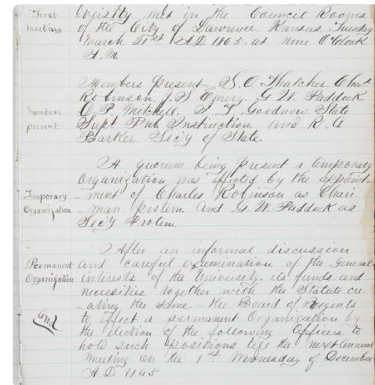 First
Meeting
versity met in the Council Rooms
of the City of Lawrence Kansas Tuesday
March 21st A.D 1865. at Nine O'Clock
A.M.
Members present
Members Present - S.O. Thatcher Chas
Robinson J.S Emery, G.W. Paddock
C.P. Mitchell I.T. Goodnow State
Supt Pub Instruction and R.A
Barker Sec'y of State.
Temporary
Organization
A quorum being present a temporary
Organization was effected by the appoint
-ment of Charles Robinson as Chair
-man protem and G.W. Paddock as
Sec'y Protem.
Permanent
Organization
After an informal discussion
and careful examination of the General
interests of the University its funds and
necessities together with the Statute cre
-ating the same - the Board of Regents
to effect a permanent Organization by
the election of the following Officers to
hold such positions till the next annual
Meeting on the 1st Wednesday of December
A.D. 1865
and